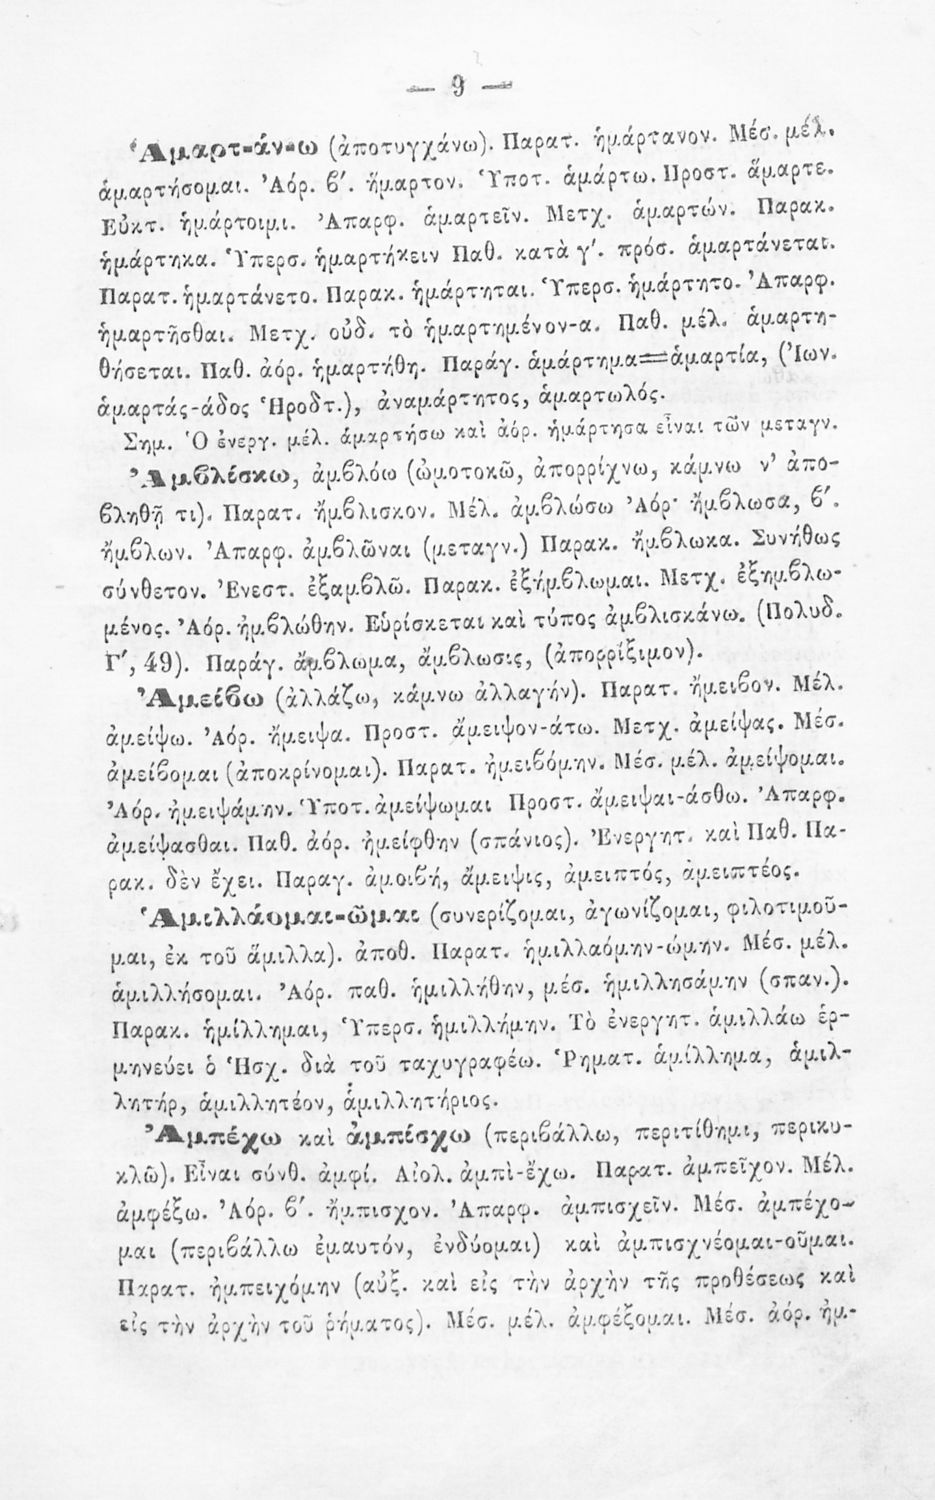 — 9 —
Ἁμαρτ-άν-ω (ἀποτυγχάνω). Παρατ. ἡμάρτανον. Μέσ. μέλ.
ἁμαρτήσομαι. Ἀόρ. β΄. ἥμαρτον. Ὑποτ. ἁμάρτω. Προστ. ἅμαρτε.
Εὐκτ. ἡμάρτοιμι. Ἀπαρφ. ἁμαρτεῖν. Μετχ. ἁμαρτών. Παρακ.
ἡμάρτηκα. Ὑπερσ. ἡμαρτήκειν Παθ. κατὰ γ΄. πρόσ. ἁμαρτάνεται.
Παρατ. ἡμαρτάνετο. Παρακ. ἡμάρτηται. Ὑπερσ. ἡμάρτητο. Ἀπαρφ.
ἡμαρτῆσθαι. Μετχ. οὐδ. τὸ ἡμαρτημένον-α. Παθ. μέλ. ἁμαρτη-
θήσεται. Παθ. ἀόρ. ἡμαρτήθη. Παράγ. ἁμάρτημα=ἁμαρτία, (Ἰων.
ἁμαρτάς-άδος Ἡροδτ.), ἀναμάρτητος, ἁμαρτωλός.
Σημ. Ὁ ἐνεργ. μέλ. ἁμαρτήσω καὶ ἀόρ. ἡμάρτησα εἶναι τῶν μεταγν.
Ἀμβλίσκω, ἀμβλόω (ὠμοτοκῶ, ἀπορρίχνω, κάμνω ν᾽ ἀπο-
βληθῇ τι). Παρατ. ἤμβλισκον. Μέλ. ἀμβλώσω Ἀόρ· ἤμβλωσα, β΄.
ἤμβλων. Ἀπαρφ. ἀμβλῶναι (μεταγν.) Παρακ. ἤμβλωκα. Συνήθως
σύνθετον. Ἐνεστ. ἐξαμβλῶ. Παρακ. ἐξήμβλωμαι. Μετχ. ἐξημβλω-
μένος. Ἀόρ. ἠμβλώθην. Εὑρίσκεται καὶ τύπος ἀμβλισκάνω. (Πολυδ.
Γ΄, 49). Παράγ. ἄμβλωμα, ἄμβλωσις, (ἀπορρίξιμον).
Ἀμείβω (ἀλλάζω, κάμνω ἀλλαγήν). Παρατ. ἤμειβον. Μέλ.
ἀμείψω. Ἀόρ. ἤμειψα. Προστ. ἄμειψον-άτω. Μετχ. ἀμείψας. Μέσ.
ἀμείβομαι (ἀποκρίνομαι). Παρατ. ἠμειβόμην. Μέσ. μέλ. ἀμείψομαι.
Ἀόρ. ἠμειψάμην. Ὑποτ. ἀμείψωμαι Προστ. ἄμειψαι-άσθω. Ἀπαρφ.
ἀμείψασθαι. Παθ. ἀόρ. ἠμείφθην (σπάνιος). Ἐνεργητ. καὶ Παθ. Πα-
ρακ. δὲν ἔχει. Παραγ. ἀμοιβή, ἄμειψις, ἀμειπτός, ἀμειπτέος.
Ἁμιλλάομαι-ῶμαι (συνερίζομαι, ἀγωνίζομαι, φιλοτιμοῦ-
μαι, ἐκ τοῦ ἅμιλλα). ἀποθ. Παρατ. ἡμιλλαόμην-ώμην. Μέσ. μέλ.
ἁμιλλήσομαι. Ἀόρ. παθ. ἡμιλλήθην, μέσ. ἡμιλλησάμην (σπαν.).
Παρακ. ἡμίλλημαι, Ὑπερσ. ἡμιλλήμην. Τὸ ἐνεργητ. ἁμιλλάω ἑρ-
μηνεύει ὁ Ἡσχ. διὰ τοῦ ταχυγραφέω. Ῥηματ. ἁμίλλημα, ἁμιλ-
λητήρ, ἁμιλλητέον, ἁμιλλητήριος.
Ἀμπέχω καὶ ἀμπίσχω (περιβάλλω, περιτίθημι, περικυ-
κλῶ). Εἶναι σύνθ. ἀμφί. Αἰολ. ἀμπὶ-ἔχω. Παρατ. ἀμπεῖχον. Μέλ.
ἀμφέξω. Ἀόρ. β΄. ἤμπισχον. Ἀπαρφ. ἀμπισχεῖν. Μέσ. ἀμπέχο-
μαι (περιβάλλω ἐμαυτόν, ἐνδύομαι) καὶ ἀμπισχνέομαι-οῦμαι.
Παρατ. ἠμπειχόμην (αὐξ. καὶ εἰς τὴν ἀρχὴν τῆς προθέσεως καὶ
εἰς τὴν ἀρχὴν τοῦ ῥήματος). Μέσ. μέλ. ἀμφέξομαι. Μέσ. ἀόρ. ἠμ-